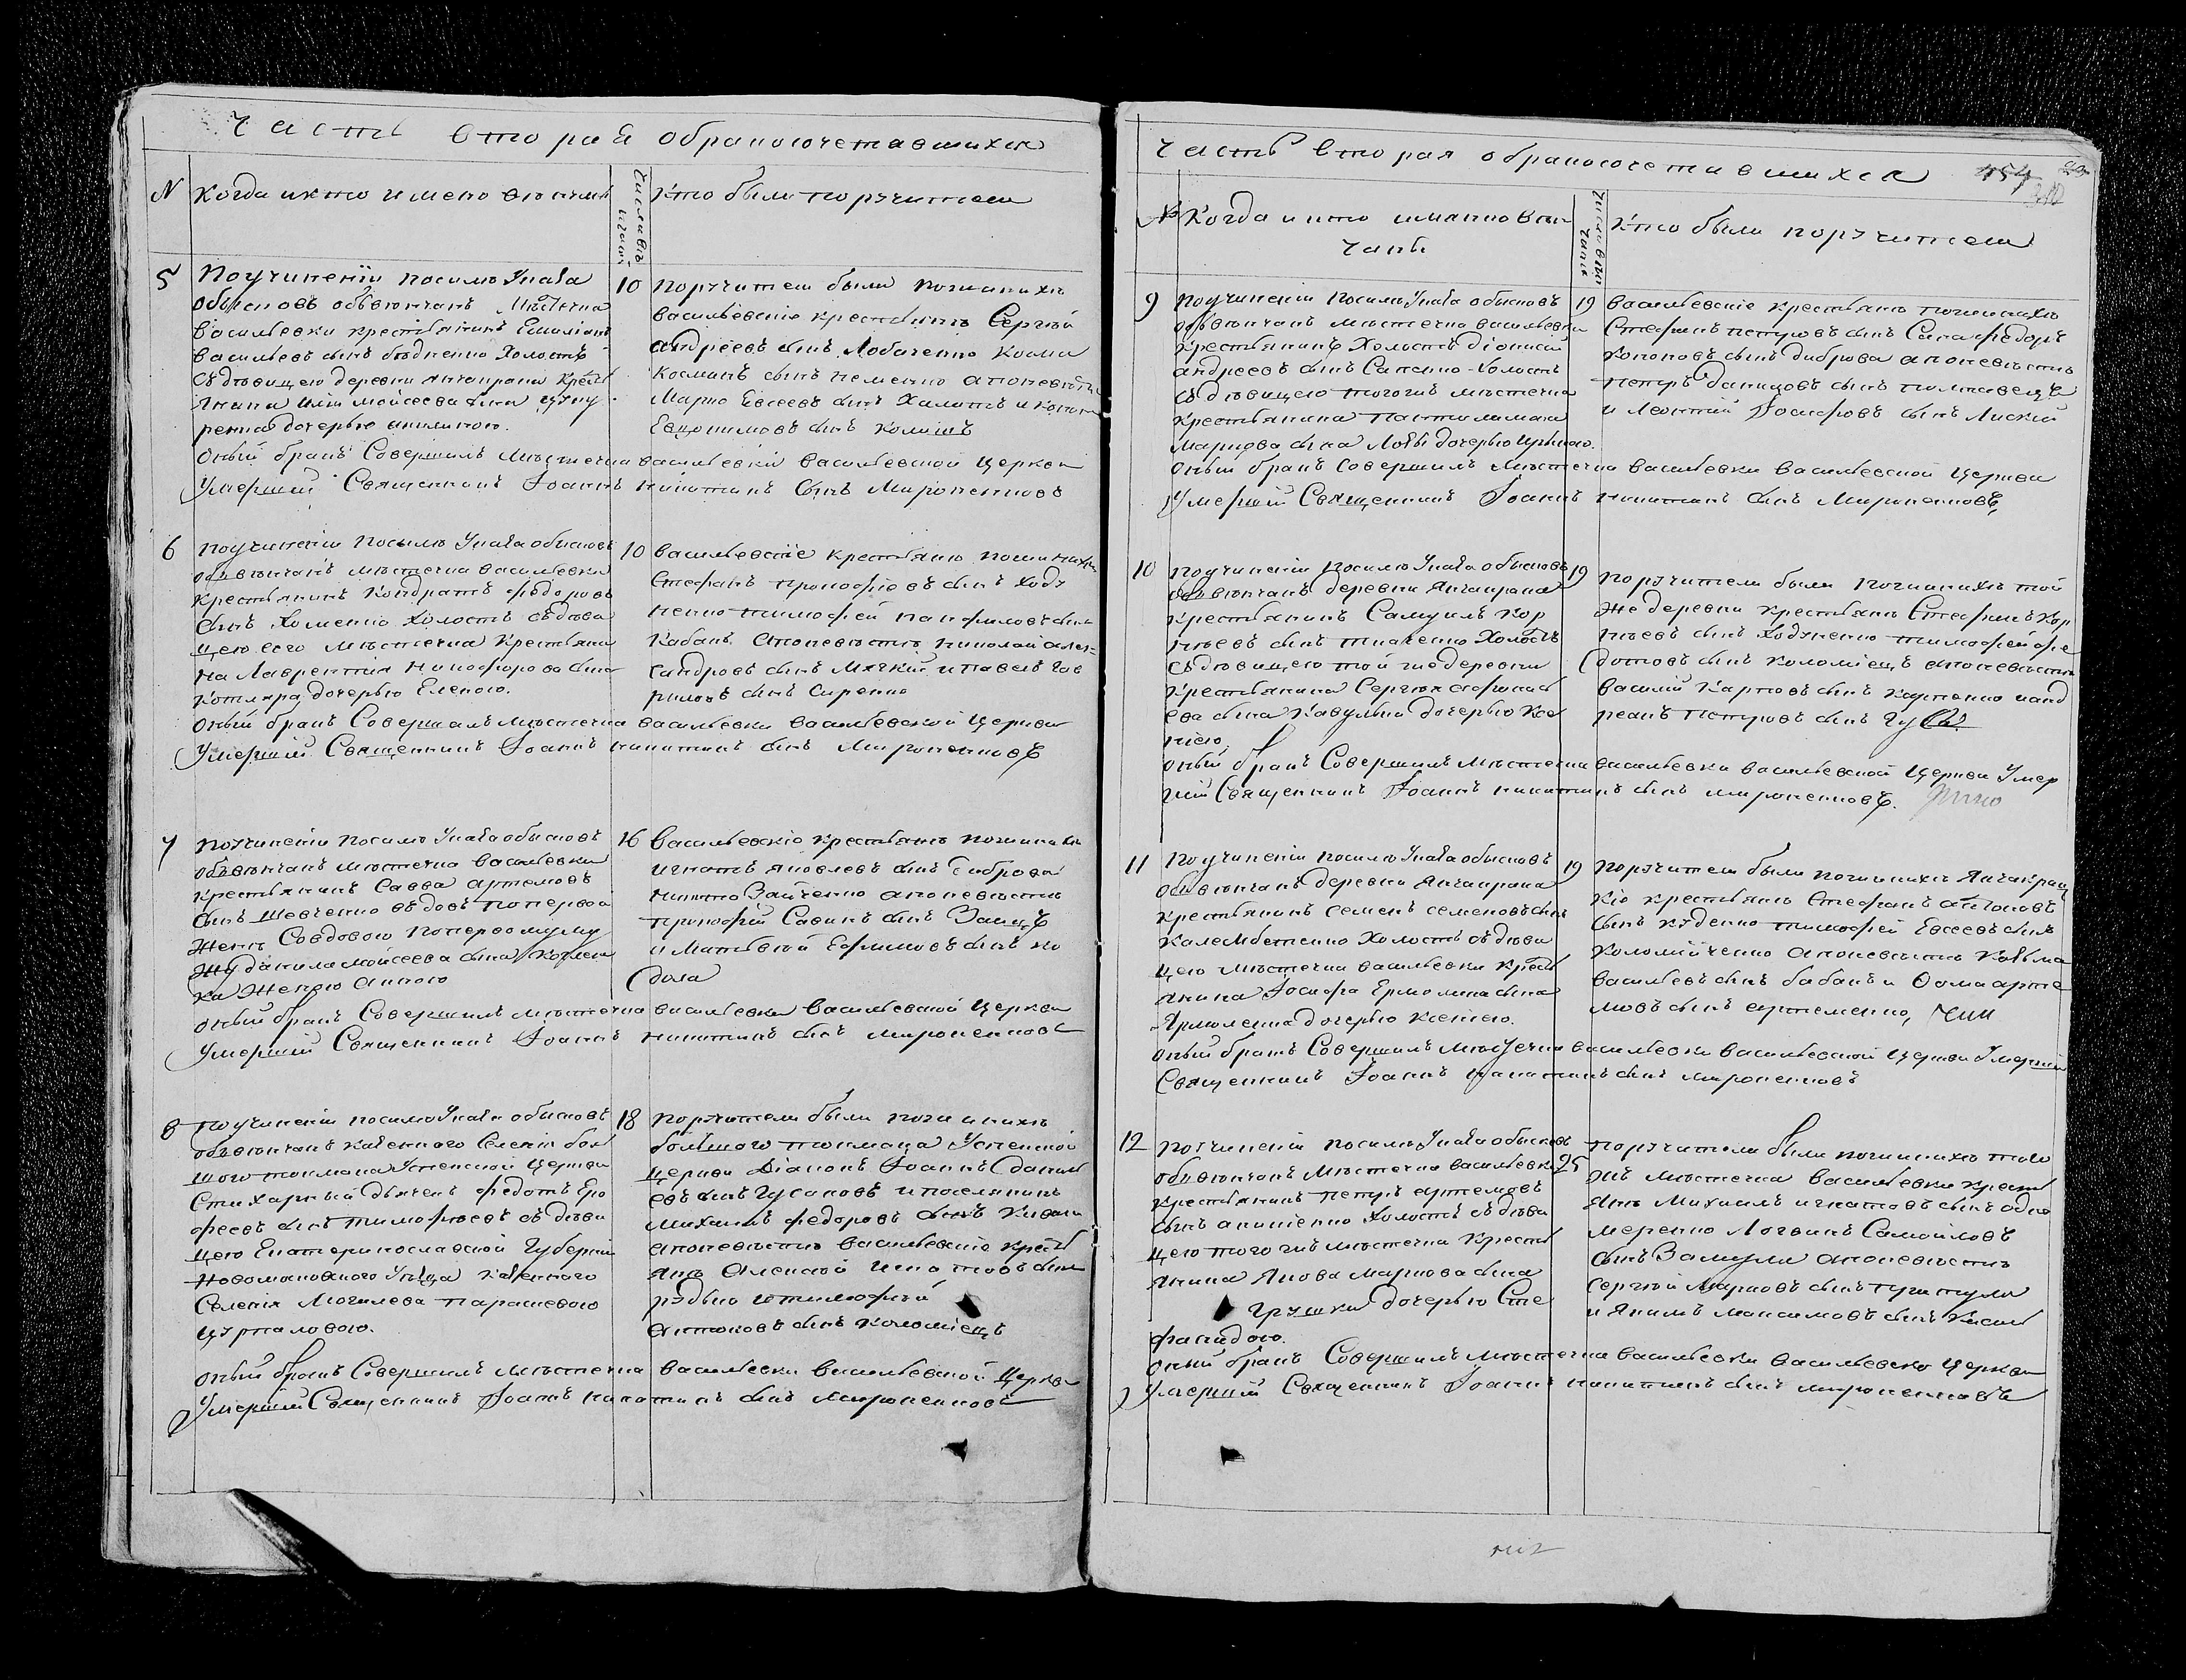 Часть вторая обракосочетавшихся
N
Когда икто имено венчаны
Число вен чанія
Кто были поручители
5
Поучиненіи посилѣ Указа
обысковъ обвѣнчанъ Мѣстечка
Васильевки крестьянинъ Емиліанъ
Васильевъ сынъ бѣдненко Холостъ
Съдѣвицею деревни Янчакрака Кресть
янина Иліи Мойсеева сына
дочерью
10
Поручители были поженихѣ
Васильевскіе крестьянинъ Сергѣй
Андреевъ сынъ Лобаченко Козма
Козминъ сынъ Неменко апоневѣстѣ
Марко Евсеевъ сынъ и
сынъ
Оный бракъ Совершилъ Мѣстечка Васильевки Васильевской Церкви
Умершій Священникъ Іоаннъ Никитинъ Сынъ Мироненковъ
6
Поучиненіи Посилѣ Указа обысковъ
обвѣнчанъ мѣстечка Васильевки
крестьянинъ Кондратъ Федоровъ
сынъ Хоменко холостъ съдѣви
цею того мѣстечка Крестьяни
на Лаврентія Никифорова сына
Котляра дочерью Еленою.
10
Васильевскіе крестьяне поженихѣ
Стефанъ Прокофіевъ сынъ Ходу
ненко Тимофей Панфиловъ сынъ
Кабанъ апоневѣстѣ Николай алек=
сандровъ сынъ Мягкій и Павелъ Гав
риловъ сынъ Сиренко
Оный бракъ Совершилъ Мѣстечка Васильевки Васильевской Церкви
Умершій Священникъ Іоаннъ Никитинъ сынъ Мироненковъ
7
Поучиненіи Посилѣ Указа обысковъ
обвѣнчанъ мѣстечка Васильевки
крестьянинъ Савва Артемовъ
сынъ Шевченко вдовъ попервой
женѣ Совдовою поперво муму
жу Данила Мойсеева сына
ка Женою Анною
16
Васильевскіе крестьяне поженихѣ
Игнатъ Яковлевъ сынъ Диброва
Никита Зайченко апоневѣстѣ
Прокофій Савинъ сынъ Заецъ
и Матвѣй Ефимовъ сынъ Ко
Оный бракъ Совершилъ Мѣстечка Васильевки Васильевской Церкви
Умершій Священникъ Іоаннъ Никитинъ сынъ Мироненковъ
8
Поучиненіи посилѣ Указа обысковъ
обвѣнчанъ казенного Селенія боль
шого токмака Успенской Церкви
Стихарный дьячекъ Федотъ Еро
феевъ сынъ Тимофѣевъ съ дѣви
цею Екатеринославской Губерніи
Новомосковского Уѣзда Казенного
Селенія Могилева Парасковою
18
Поручители были поженихѣ
большого токмака Успенской
Церкви Діаконъ Іоаннъ Данил
евъ сынъ Гусаковъ и поселянинъ
Михаилъ Федоровъ сынъ
апоневѣстѣ Васильевскіе кресть
яне Алексѣй сынъ
и Тимофѣй
Антоновъ сынъ Коломіецъ
Оный бракъ Совершилъ мѣстечка Васильевки Васильевской Церкви
Умершій Священникъ Іоаннъ Никитинъ сынъ Мироненковъ
Часть вторая обракосочетавшихся
154
№
Когда и кто именно вен-
чаны
Число вен чанія
Кто были поручители
9
Поучиненіи Посилѣ Указа обысковъ
обвѣнчанъ мѣстечка Васильевки
крестьянинъ Холостъ Діонисій
Андреевъ сынъ Сапенко Холостъ
съ дѣвицею тогожъ мѣстечка
крестьянина Пантелимона
Маркова сына дочерью
19
Васильевскіе крестьяне поженихѣ
Стефанъ Петровъ сынъ Федоръ
Кононовъ сынъ диброва апоневѣстѣ
Петръ Даниловъ сынъ
и Леонтій Іосифовъ сынъ
Оный бракъ совершилъ мѣстечка Васильевки Васильевской Церкви
Умершій Священникъ Іоаннъ Никитинъ сынъ Мироненковъ,
10
Поучиненіи Посилѣ Указа обысковъ
обвѣнчанъ деревни Янчакрака
крестьянинъ Самуилъ Кор
нѣевъ сынъ Ткаченко Холостъ
съдѣвицею той же деревни
крестьянина Сергѣя
ева сына дочерью Ксе
ніею
19
Поручители были Поженихѣ той
же деревни крестьяне Стефанъ Кор
нѣевъ сынъ Ходуненко Тимофей Фе
дотовъ сынъ Коломіецъ апоневѣстѣ
Василій Карповъ сынъ Карпенко и Анд
рѣй Петровъ сынъ
Оный бракъ Совершилъ Мѣстечка Васильевки Васильевской Церкви Умер
шій Священникъ Іоаннъ Никитинъ сынъ Мироненковъ.
11
Поучиненіи посилѣ Указа обысковъ
обвѣнчанъ деревни Янчакрака
крестьянинъ Семенъ Семеновъ сынъ
Калембетенко Холостъ съдѣви
цею мѣстечка Васильевки Кресть
янина Іосифа Ермолина сына
Ярмоленка дочерью Ксеніею.
19
Поручители были поженихѣ Янчакрац
кіе крестьяне Стефанъ Антоновъ
сынъ Куденко Тимофей Евсеевъ сынъ
Коломійченко апоневѣстѣ Козьма
Васильевъ сынъ бабакъ и Ѳома Арте
мовъ сынъ Артеменко,
Оный бракъ Совершилъ Мѣстечка Васильевки Васильевской Церкви Умершій
Священникъ Іоаннъ Никитинъ сынъ Мироненковъ
12
Поучиненіи посилѣ Указа обысковъ
обвѣнчанъ Мѣстечка Васильевки
крестьянинъ Петръ Артемовъ
сынъ Холостъ съ дѣви
цею того жъ мѣстечка Кресть
янина Якова Маркова сына
Грушки дочерью Сте
фанидою.
25
Поручители были поженихѣ того
жъ мѣстечка Васильевки кресть
яне Михаилъ Игнатовъ сынъ
Логвинъ Самойловъ
сынъ апоневѣстѣ
Сергѣй Марковъ сынъ
и Якимъ Максимовъ сынъ
Оный бракъ Совершилъ Мѣстечка Васильевки Васильевско Церкви
Умершій Священникъ Іоаннъ Никитинъ сынъ Мироненковъ